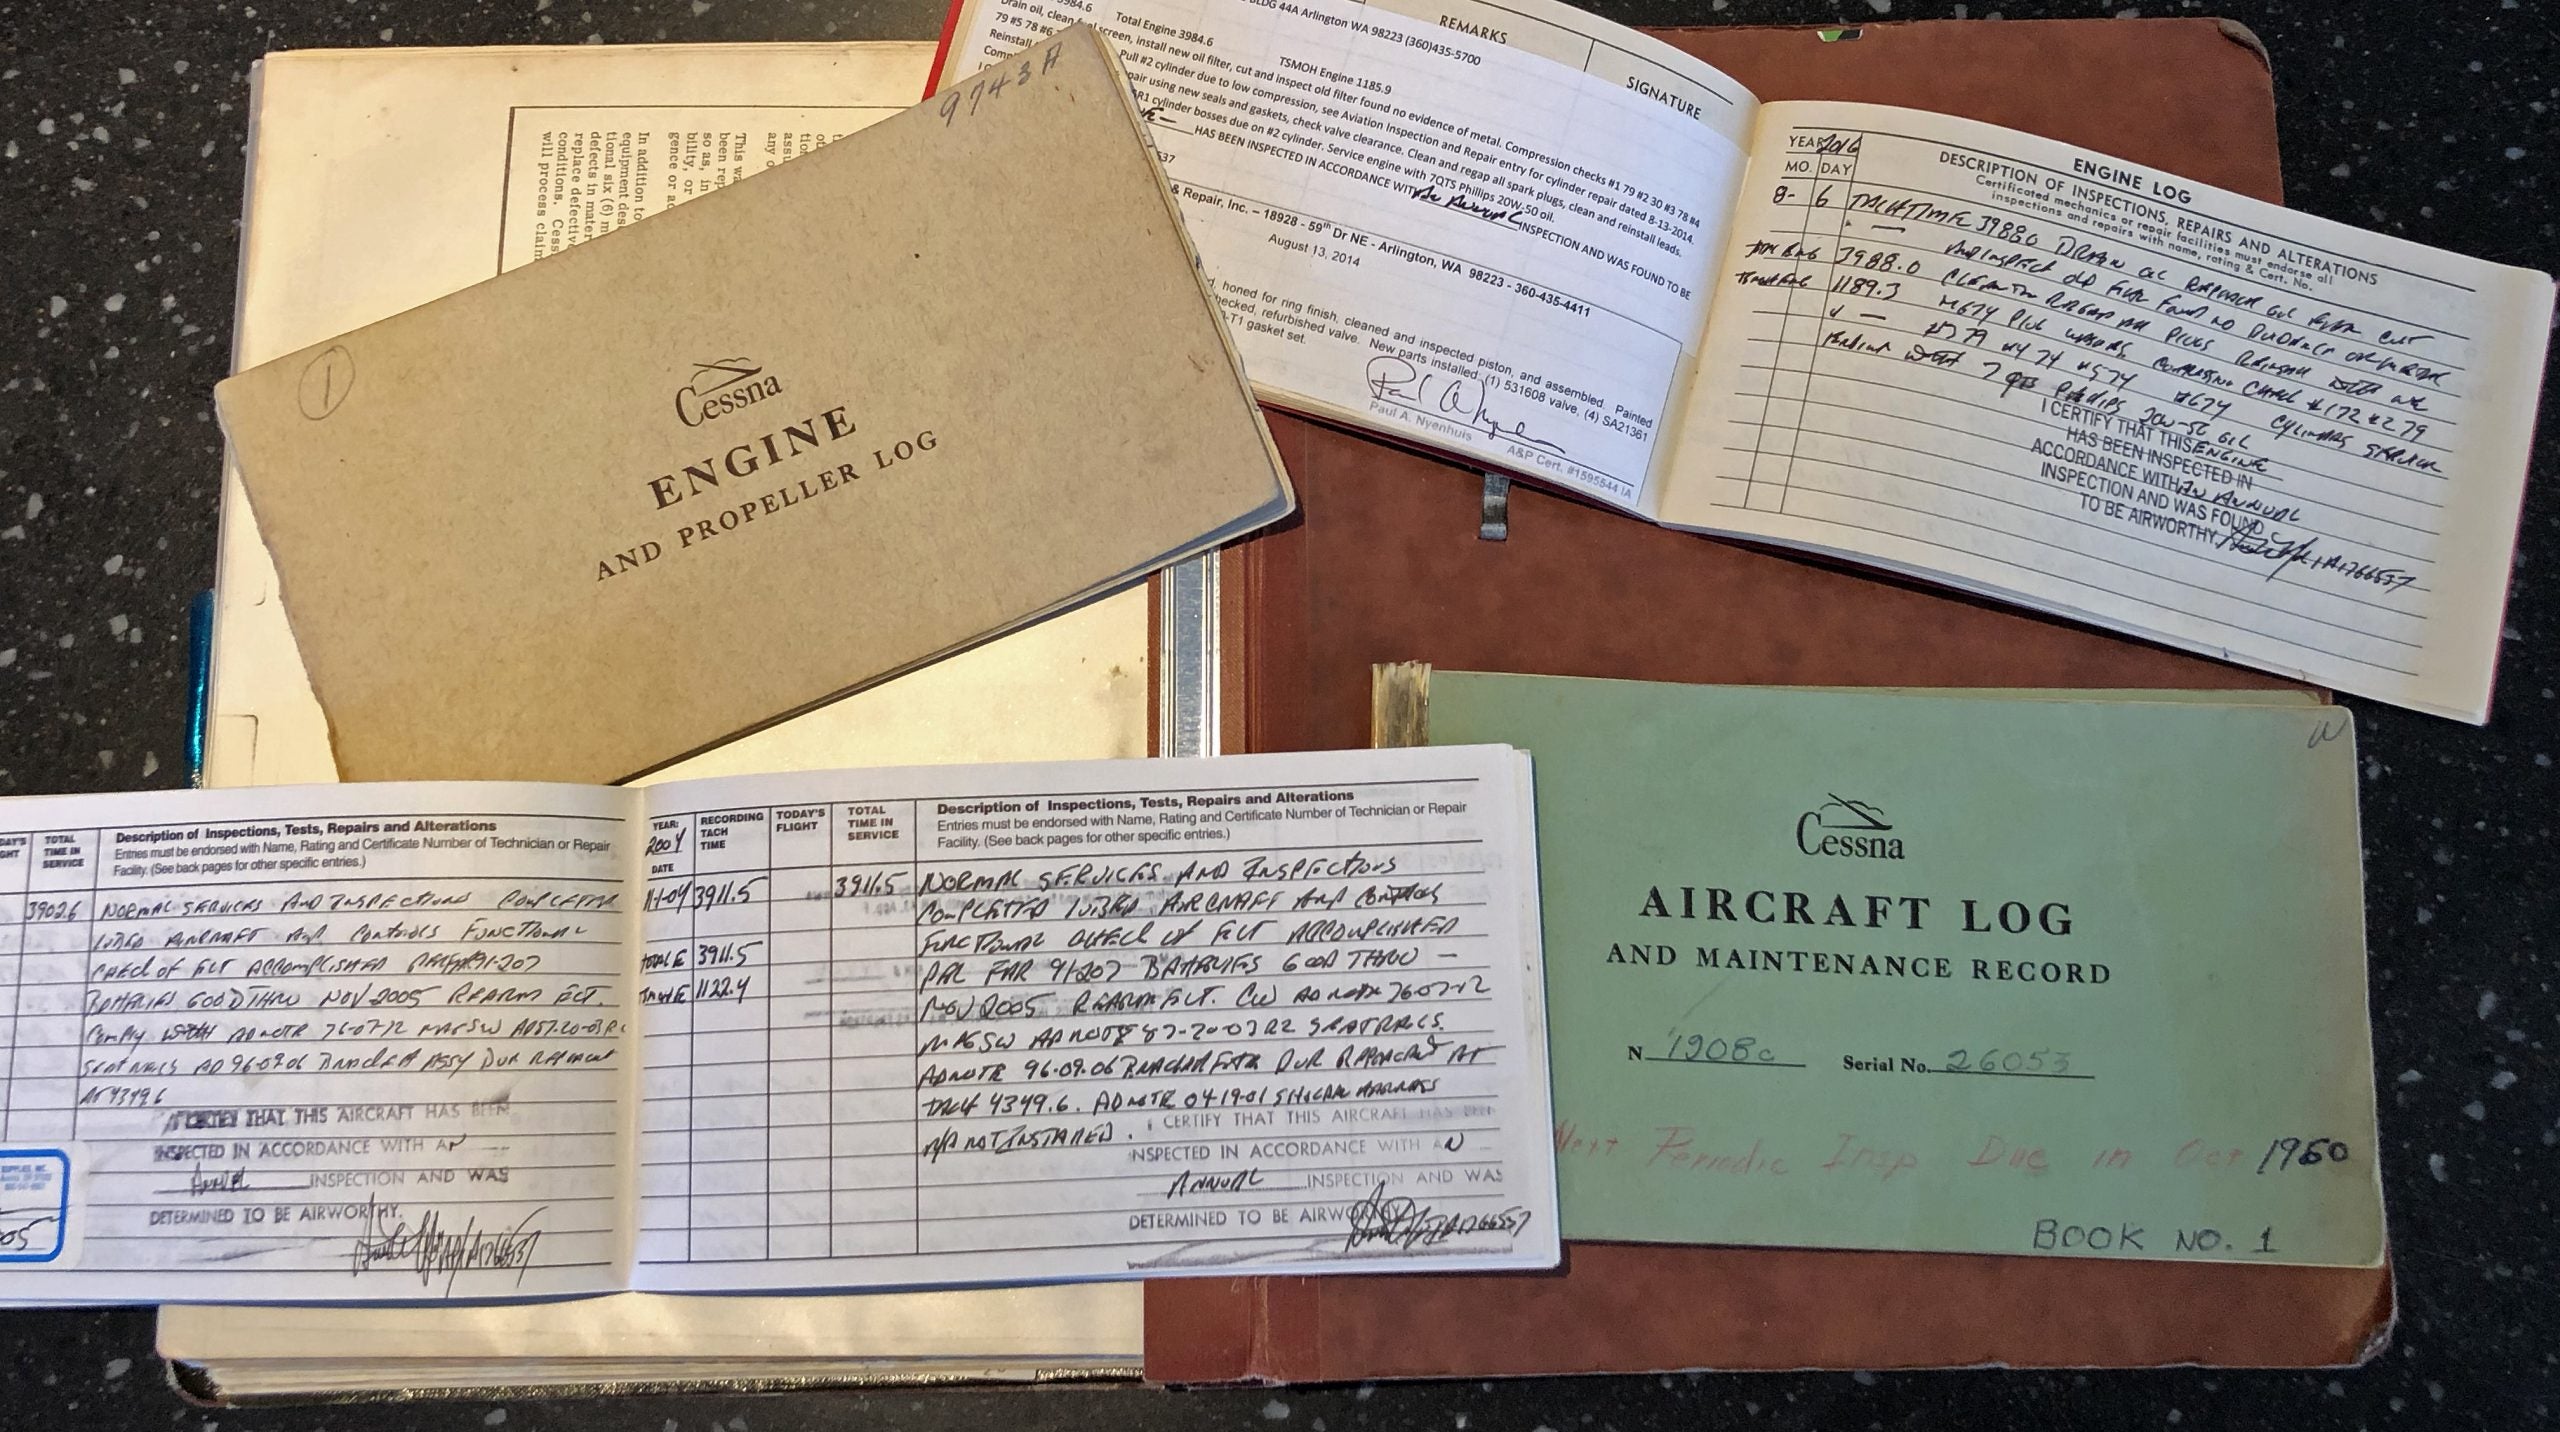 9743A
1
Cessna
ENGINE
AND PROPELLER LOG
This wa
been rep
so as, in
bility, or
gence or
In addition to
equipment des
tional six (6) m
defects in mater
replace defectiv
conditions. Cess
will process claim
BLDG 44A Arlington WA 98223 (360)435-5700
REMARKS
SIGNATURE
3984.6 Total Engine 3984.6 TSMOH Engine 1185.9
Drain oil, clean screen, install new oil filter, cut and inspect old filter found no evidence of metal. Compression checks #1 79 #2 30 #3 78 #4
79 #5 78 #6 Pull #2 cylinder due to low compression, see Aviation Inspection and Repair entry for cylinder repair dated 8-13-2014.
Reinstall using new seals and gaskets, check valve clearance. Clean and regap all spark plugs, clean and reinstall leads.
cylinder bosses due on #2 cylinder. Service engine with 7QTS Phillips 20W-50 oil.
HAS BEEN INSPECTED IN ACCORDANCE WITH An Annual INSPECTION AND WAS FOUND TO BE
537
& Repair, Inc. – 18928 - 59th Dr NE - Arlington, WA 98223 - 360-435-4411
August 13, 2014
honed for ring finish, cleaned and inspected piston, and assembled. Painted
checked, refurbished valve. New parts installed: (1) 531608 valve, (4) SA21361
-T1 gasket set.
Paul A. Nyenhuis
A&P Cert. #1595544 IA
ENGINE LOG
YEAR 2016
MO. DAY
DESCRIPTION OF INSPECTIONS, REPAIRS AND ALTERATIONS
Certificated mechanics or repair facilities must endorse all
inspections and repairs with name, rating & Cert. No.
8- 6 TACH TIME 3988.0 DRAIN OIL REPLACE OIL FILTER CUT
AND INSPECT OLD FILTER FOUND NO EVIDENCE OF METAL
3988.0 CLEAN AND REGAP ALL PLUGS REINSTALL WITH NEW
1189.3 M674 PLUG WASHERS COMPRESSION CHECK #1 72 #2 79
#3 79 #4 74 #5 74 #6 74 CYLINDERS SERVICE
ENGINE WITH 7 QTS Phillips 20W-50 OIL
I CERTIFY THAT THIS ENGINE
HAS BEEN INSPECTED IN
ACCORDANCE WITH AN ANNUAL
INSPECTION AND WAS FOUND
TO BE AIRWORTHY.
1766537
TOTAL TIME IN SERVICE
Description of Inspections, Tests, Repairs and Alterations
Entries must be endorsed with Name, Rating and Certificate Number of Technician or Repair
Facility. (See back pages for other specific entries.)
3902.6 NORMAL SERVICES AND INSPECTIONS COMPLETED
LUBED AIRCRAFT AND CONTROLS FUNCTIONAL
CHECK OF ELT ACCOMPLISHED PER FAR 91-207
BATTERIES GOOD THRU NOV 2005 REARM ELT.
COMPLY WITH AD NOTE 76-07-12 MAG SW
SEAT RAILS AD 96-09-06 BRACKETT ASSY DUE REPLACEMENT
AT 4349.6
I CERTIFY THAT THIS AIRCRAFT HAS BEEN
INSPECTED IN ACCORDANCE WITH AN
ANNUAL INSPECTION AND WAS
DETERMINED TO BE AIRWORTHY.
1766537
YEAR: 2004
DATE
RECORDING TACH TIME
TODAY'S FLIGHT
TOTAL TIME IN SERVICE
Description of Inspections, Tests, Repairs and Alterations
Entries must be endorsed with Name, Rating and Certificate Number of Technician or Repair
Facility. (See back pages for other specific entries.)
11-1-04 3911.5 3911.5 NORMAL SERVICES AND INSPECTIONS
COMPLETED LUBED AIRCRAFT AND CONTROLS
TOTAL E 3911.5 FUNCTIONAL CHECK OF ELT ACCOMPLISHED
PER FAR 91-207 BATTERIES GOOD THRU —
TSMOHE 1122.4 NOV 2005 REARM ELT. CW AD NOTE 76-07-12
MAG SW AD NOTE 87-20-03 R2 SEAT RAILS.
AD NOTE 96-09-06 BRACKETT FILTER DUE REPLACEMENT AT
TACH 4349.6. AD NOTE 04-19-01 SHOULDER HARNESS
N/A NOT INSTALLED.
I CERTIFY THAT THIS AIRCRAFT HAS BEEN
INSPECTED IN ACCORDANCE WITH AN
ANNUAL INSPECTION AND WAS
DETERMINED TO BE AIRWORTHY
1766537
Cessna
AIRCRAFT LOG
AND MAINTENANCE RECORD
N 1908c Serial No. 26053
Next Periodic Insp Due in Oct 1960
BOOK NO. 1